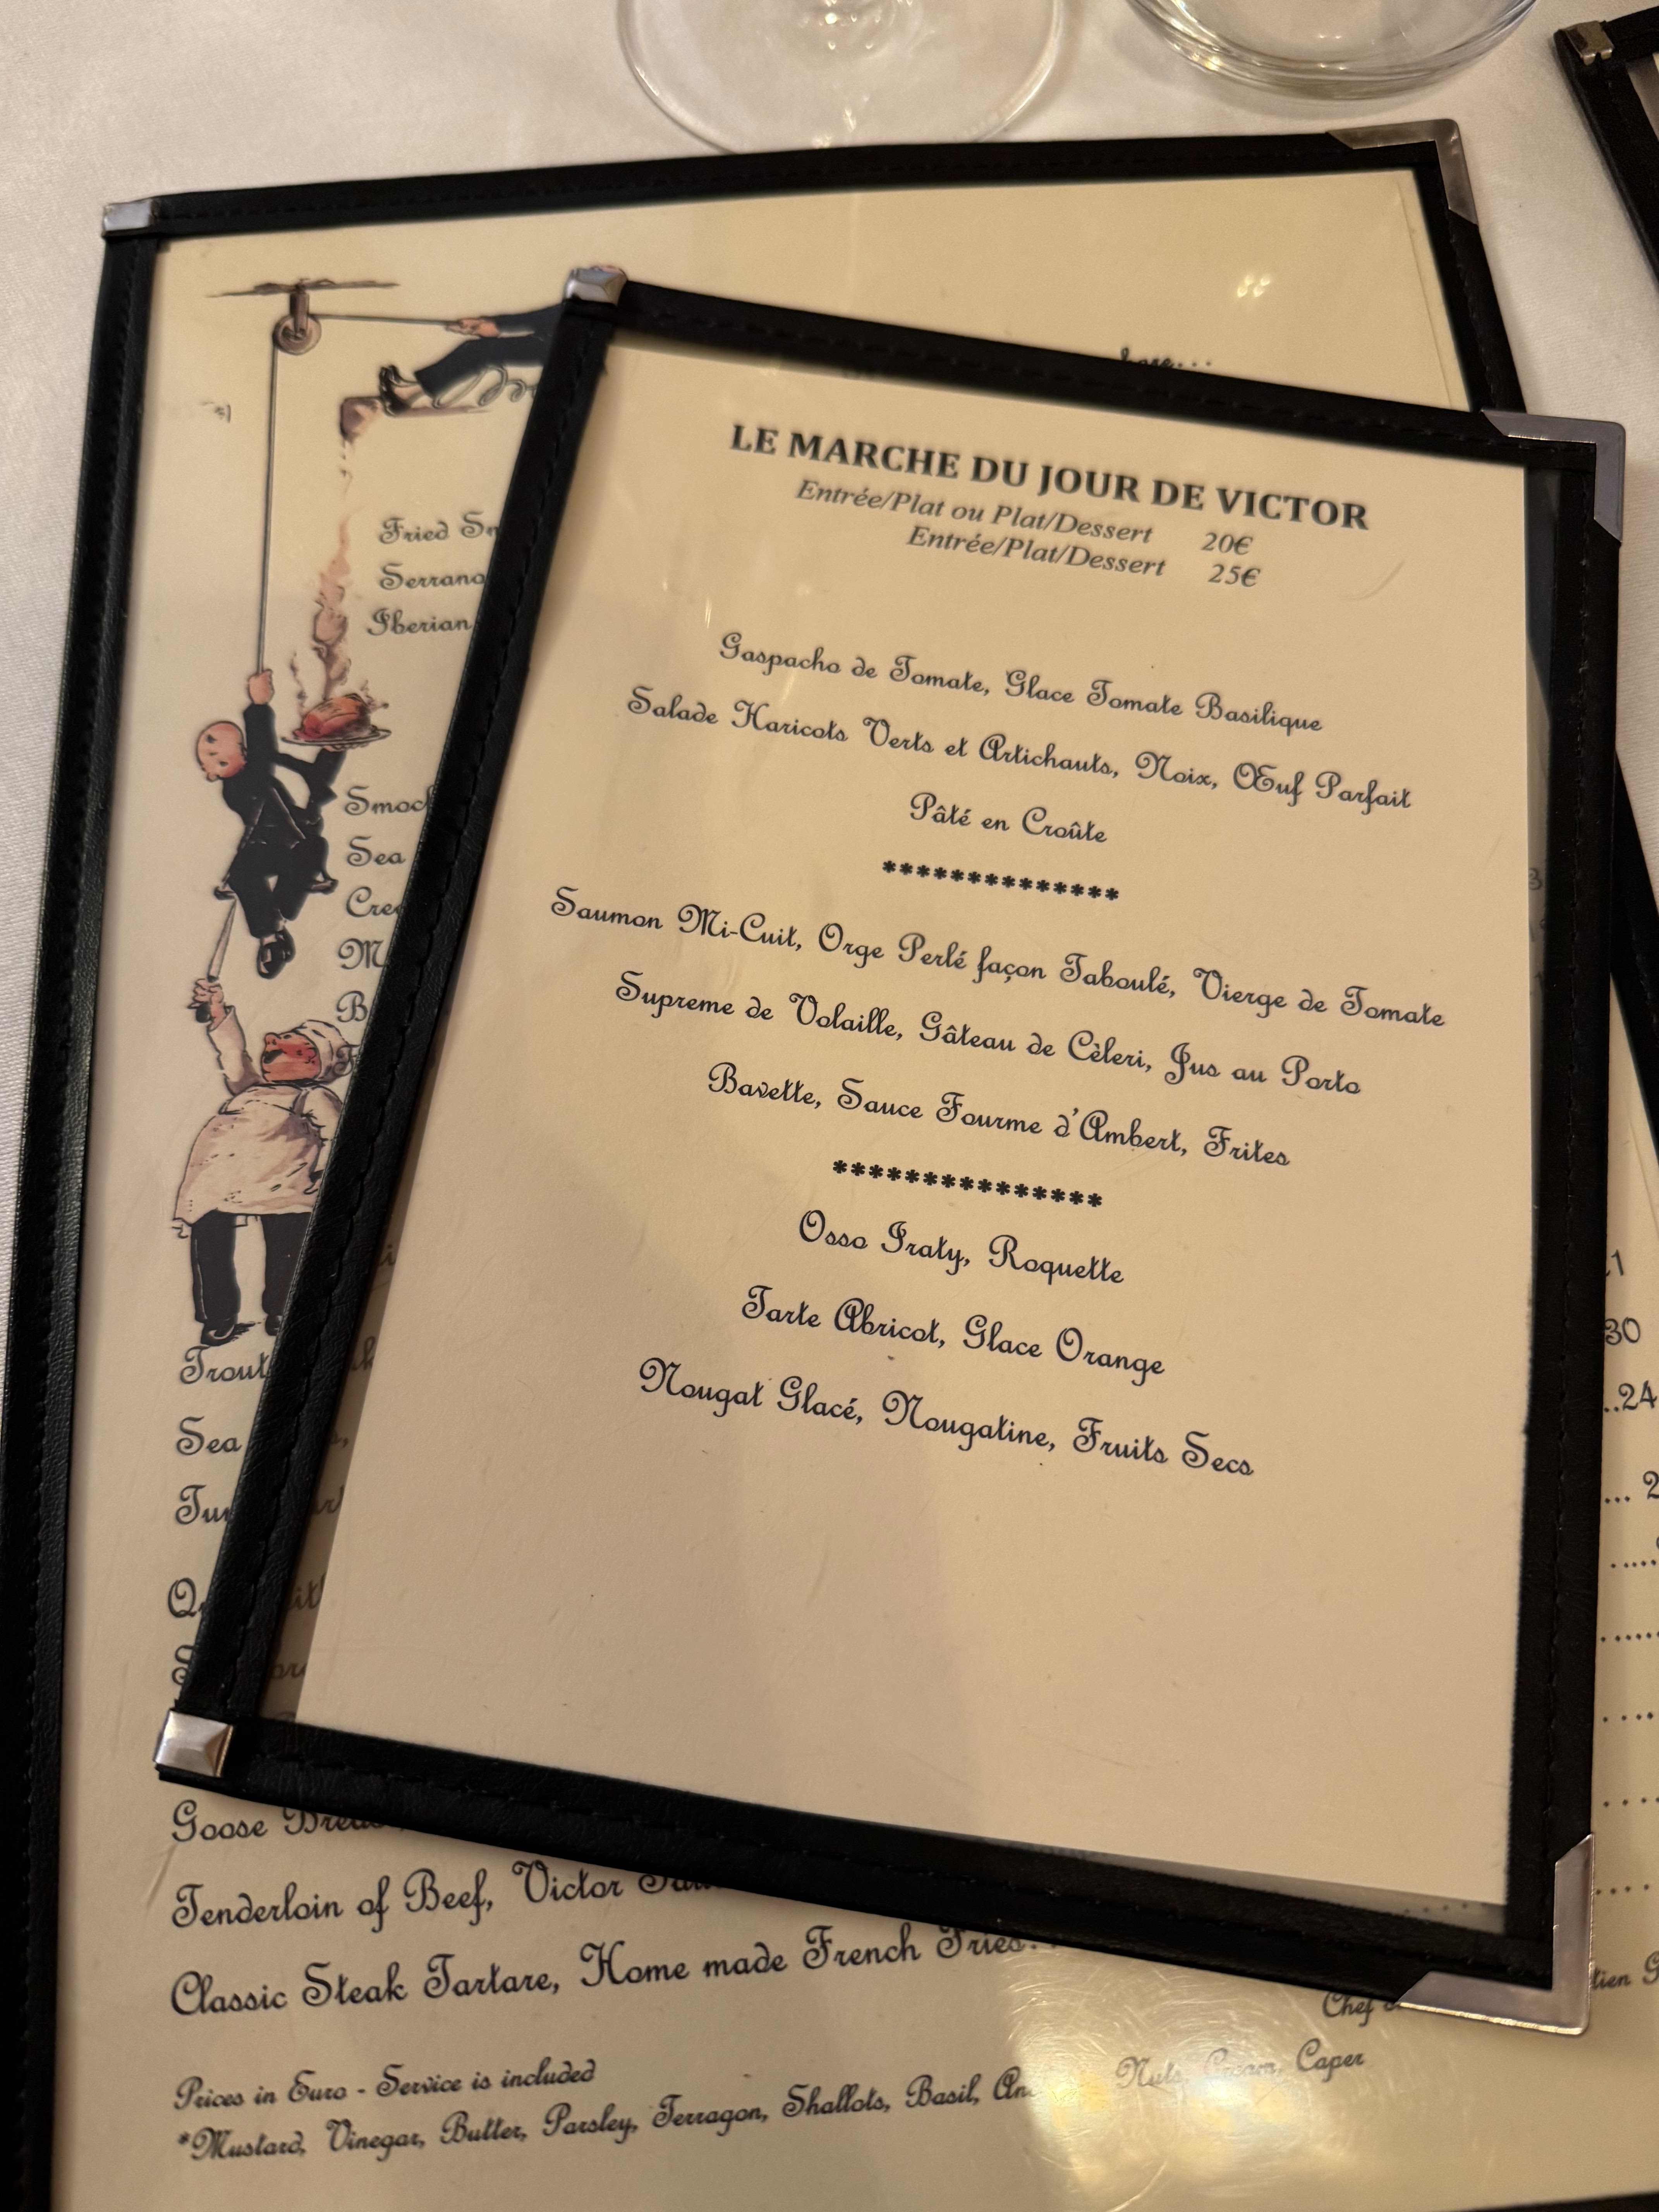 here...
LE MARCHE DU JOUR DE VICTOR
Entrée/Plat ou Plat/Dessert 20€
Entrée/Plat/Dessert 25€
Gaspacho de Tomate, Glace Tomate Basilique
Salade Haricots Verts et Artichauts, Noix, Œuf Parfait
Pâté en Croûte
**************
Saumon Mi-Cuit, Orge Perlé façon Taboulé, Vierge de Tomate
Supreme de Volaille, Gâteau de Cèleri, Jus au Porto
Bavette, Sauce Fourme d'Ambert, Frites
***************
Osso Iraty, Roquette
Tarte Abricot, Glace Orange
Nougat Glacé, Nougatine, Fruits Secs
Fried
Serrano
Iberian
Sea
Trout
Sea
30
..24
Goose
Tenderloin of Beef, Victor
Classic Steak Tartare, Home made French Fries
Chef
Prices in Euro - Service is included
*Mustard, Vinegar, Butter, Parsley, Terragon, Shallots, Basil, Nuts, Cream, Caper